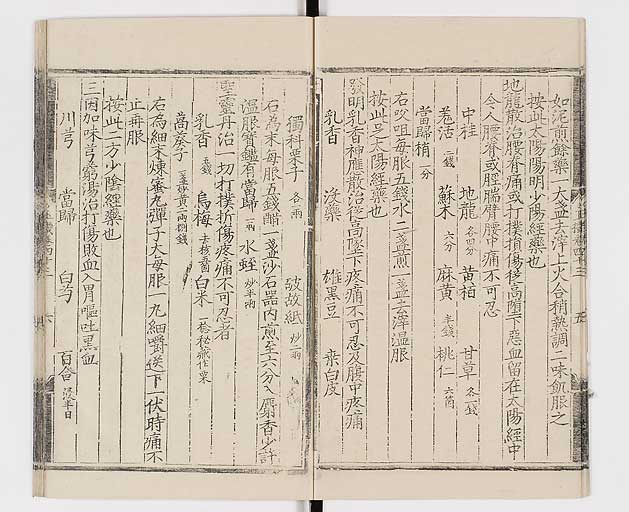 如泥煎餘藥一大盞去滓上火令稍熱調二味飢服之
按此太陽陽明少陽經藥也
地龍散治腰脊痛或打撲損傷從高墮下惡血留在太陽經中
令人腰脊或脛腨臂腰中痛不可忍
中桂 地龍各四分 黃栢 甘草各一錢
羗活二錢 蘇木六分 麻黃半錢 桃仁六箇
當歸梢一分
右㕮咀每服五錢水二盞煎一盞去滓溫服
按此足太陽經藥也
發明乳香神應散治從高墜下疼痛不可忍及腹中疼痛
乳香 沒藥 雄黑豆 桑白皮
獨科栗子各一兩 破故紙炒二兩
右為末每服五錢醋一盞沙石器內煎至六分入麝香少許
溫服寶鑑有當歸一兩水蛭炒半兩
聖靈丹治一切打撲折傷疼痛不可忍者
乳香五錢 烏梅去核五箇 白米一捻
萵苣子
右為細末煉蜜丸彈子大每服一丸細嚼送下一伏時痛不
止再服
按此二方少陰經藥也
三因加味芎藭湯治打傷敗血入胃嘔吐黑血
川芎 當歸 白芍 百合浸半日